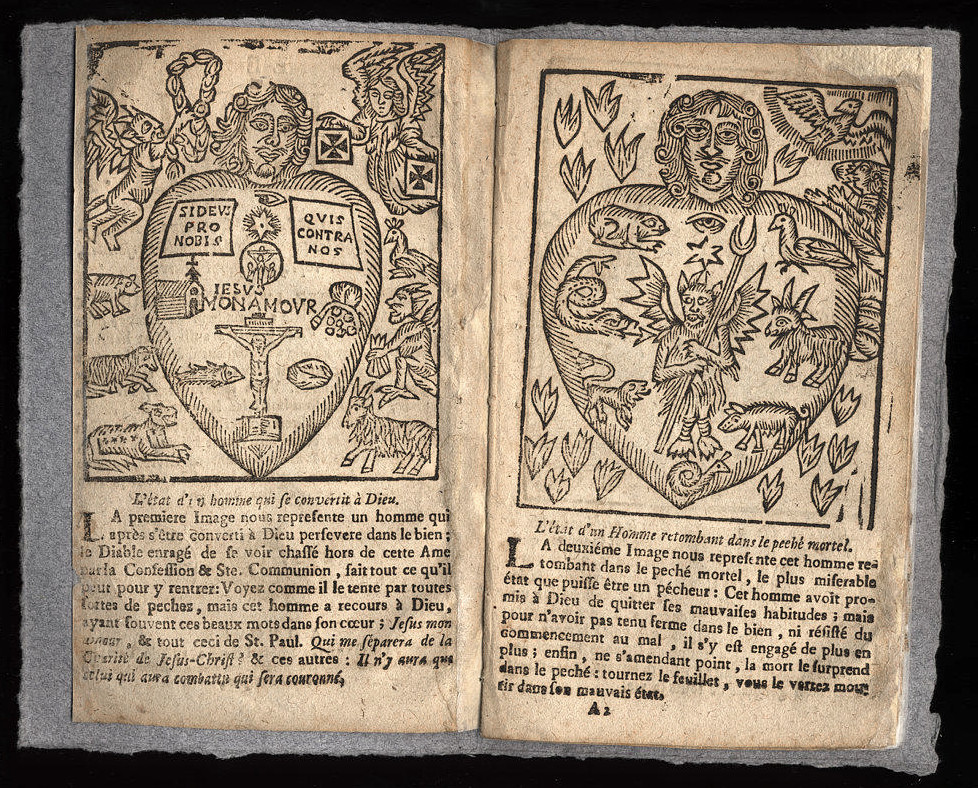 SI DEVS
PRO
NOBIS
QVIS
CONTRA
NOS
IESVS
MON AMOVR
L'état d'un homme qui se convertit à Dieu.
LA premiere Image nous represente un homme qui
après s'être converti à Dieu persevere dans le bien;
le Diable enragé de se voir chassé hors de cette Ame
par la Confession & Ste. Communion, fait tout ce qu'il
peut pour y rentrer: Voyez comme il le tente par toutes
sortes de pechez, mais cet homme a recours à Dieu,
ayant souvent ces beaux mots dans son cœur; Jesus mon
amour, & tout ceci de St. Paul. Qui me séparera de la
Charité de Jesus-Christ? & ces autres: Il n'y aura que
celui qui aura combattu qui sera couronné,
L'état d'un Homme retombant dans le peché mortel.
LA deuxiéme Image nous represente cet homme re-
tombant dans le peché mortel, le plus miserable
état que puisse être un pécheur: Cet homme avoit pro-
mis à Dieu de quitter ses mauvaises habitudes; mais
pour n'avoir pas tenu ferme dans le bien, ni résisté du
commencement au mal, il s'y est engagé de plus en
plus; enfin, ne s'amendant point, la mort le surprend
dans le peché: tournez le feuillet, vous le verrez mou-
rir dans son mauvais état.
A2